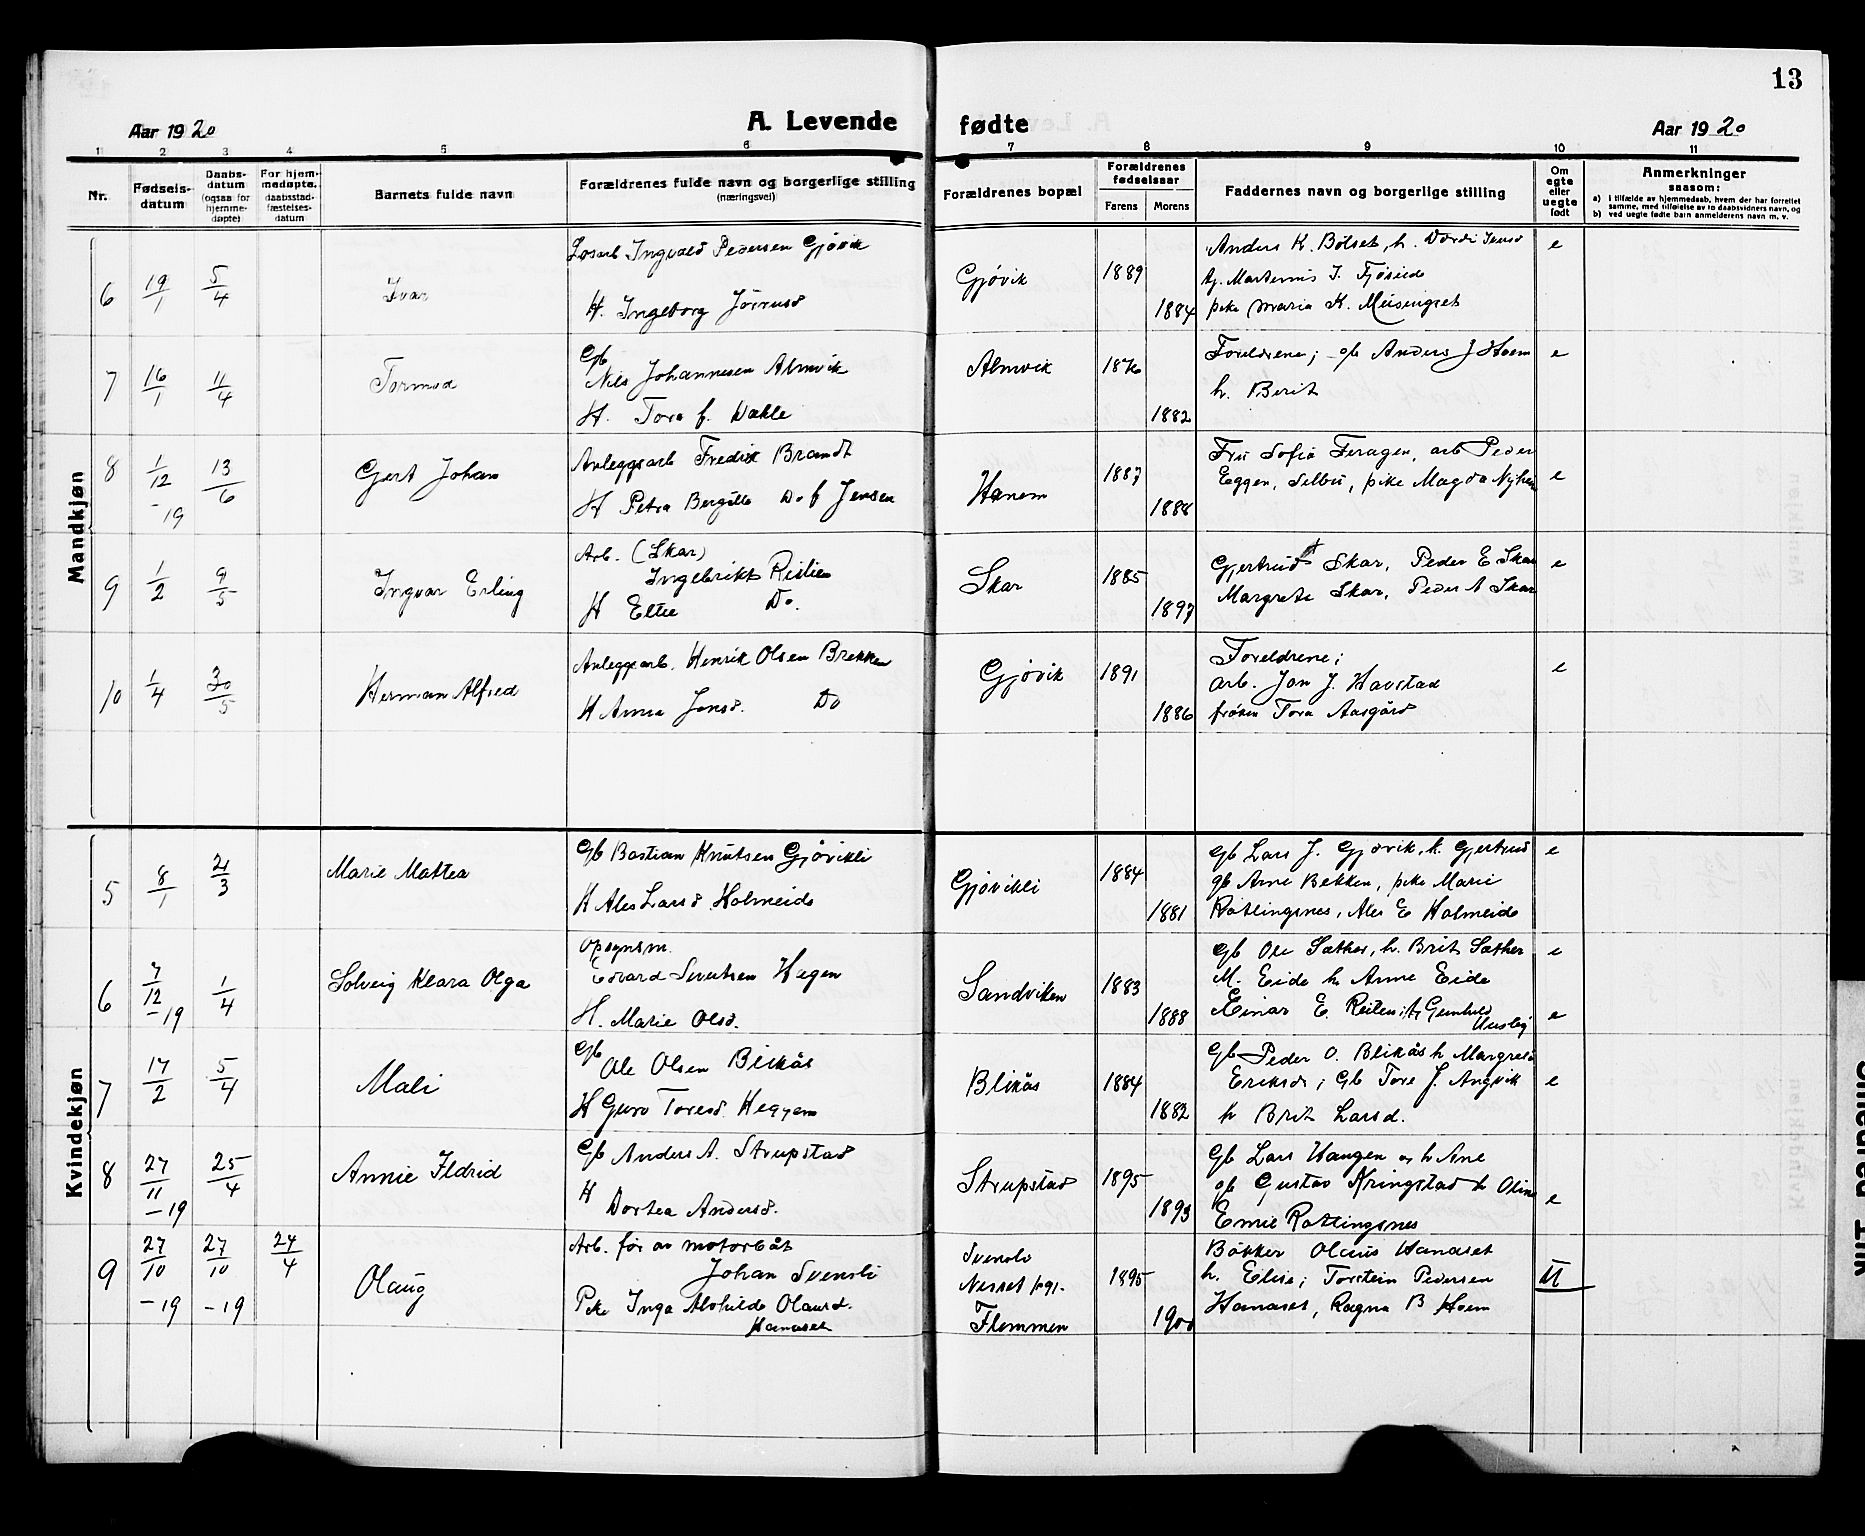 13
Aar 1920
A. Levende fødte
Aar 1920
1 2 3 4 5 6 7 8 9 10 11
Nr.
Fødsels-
datum
Daabs-
datum
(ogsaa for
hjemme-
døpte)
For hjem-
medøpte.
daabsstad-
fæstelses-
datum
Barnets fulde navn
Forældrenes fulde navn og borgerlige stilling
(næringsvei)
Forældrenes bopæl
Forældrenes
fødselsaar
Farens Morens
Faddernes navn og borgerlige stilling
Om
egte
eller
uegte
født
Anmerkninger
saasom:
a) i tilfælde av hjemmedaab, hvem der har forrettet
samme, med tilføielse av to daabsvidners navn, og
b) ved uegte fødte barn anmelderens navn m. v.
Mandkjøn
6 19/1 5/4 Ivar
Losarb Ingvald Pedersen Gjøvik
H. Ingeborg
Gjøvik 1889 1884
Anders K. Bölset, h.
tj. Marternus J.
pike Maria K. Meisingset
e
7 16/1 11/4 Tormod
Gb
Nils Johannesen Almvik
H. Tora f. Dahle
Almvik 1876 1882
Foreldrene; gb Anders J Hoem
h. Berit
e
8 1/12 -19 13/6 Gert Johan
Anleggsarb Fredik Brandt
H Petra Bergitte Do f Jensen
Hanem 1887 1888
Fru Sofia Feragen, arb Peder
Eggen, Selbu, pike Magda
e
9 1/2 9/5 Ingvar Erling
Arb. (Skar)
Ingebrikt
H Do.
Skar 1885 1897
Gjertrud Skar, Peder E Skar
Margrete Skar, Peder A Skar
e
10 1/4 30/5 Herman Alfred
Anleggsarb. Henrik Olsen Brekken
H Anna Jonsd. Do
Gjøvik 1891 1886
Foreldrene;
arb. Jon J. Havstad
frøken Tora Aasgård
e
Kvindekjøn
5 8/1 21/3 Marie Mattea
Gb Bastian Knutsen Gjøvikli
H Ales Larsd Holmeide
Gjøvikli 1884 1881
Gb Lars J. Gjøvik, h. Gjertrud
gb Arne Bekken, pike Marie
Rotlingsnes, Ales E Holmeide
e
6 7/12 -19 1/4 Solveig Klara Olga
Opsynsm.
Edvard Sivertsen Hagen
H. Marie Olsd.
Sandviken 1883 1888
Gb Ole Sæther, h. Brit Sæther
M. Eide h Anne Eide
Einar E. Reiten; tj Gunhild
e
e
7 17/2 5/4 Mali
Gb
Ole Olsen Blikås
H Guro Toresd. Heggem
Blikås 1884 1882
Gb Peder O. Blikås h Margrete
Eriksd; Gb Tore J. Angvik
h Brit Larsd.
e
8 27/11 -19 25/4 Annie Ildrid
Gb Anders A. Strupstad
H
Dortea Andersd.
Strupstad 1895 1893
Gb Lars Haugen og h Ane
gb Gustav Kringstad h Oline
Emil Rotlingsnes
e
9 27/10 -19 27/10 -19 24/4 Olaug
Arb. før av motorbåt
Johan Svensli
Pike Inga Alvhilde Olausd.
Hamaset
Svensli
Nesset
Flemmen
1895 1900
Bökker Olaus Hamaset
h. Elise; Torstein Pedersen
Hamaset, Ragna B Hoem
U